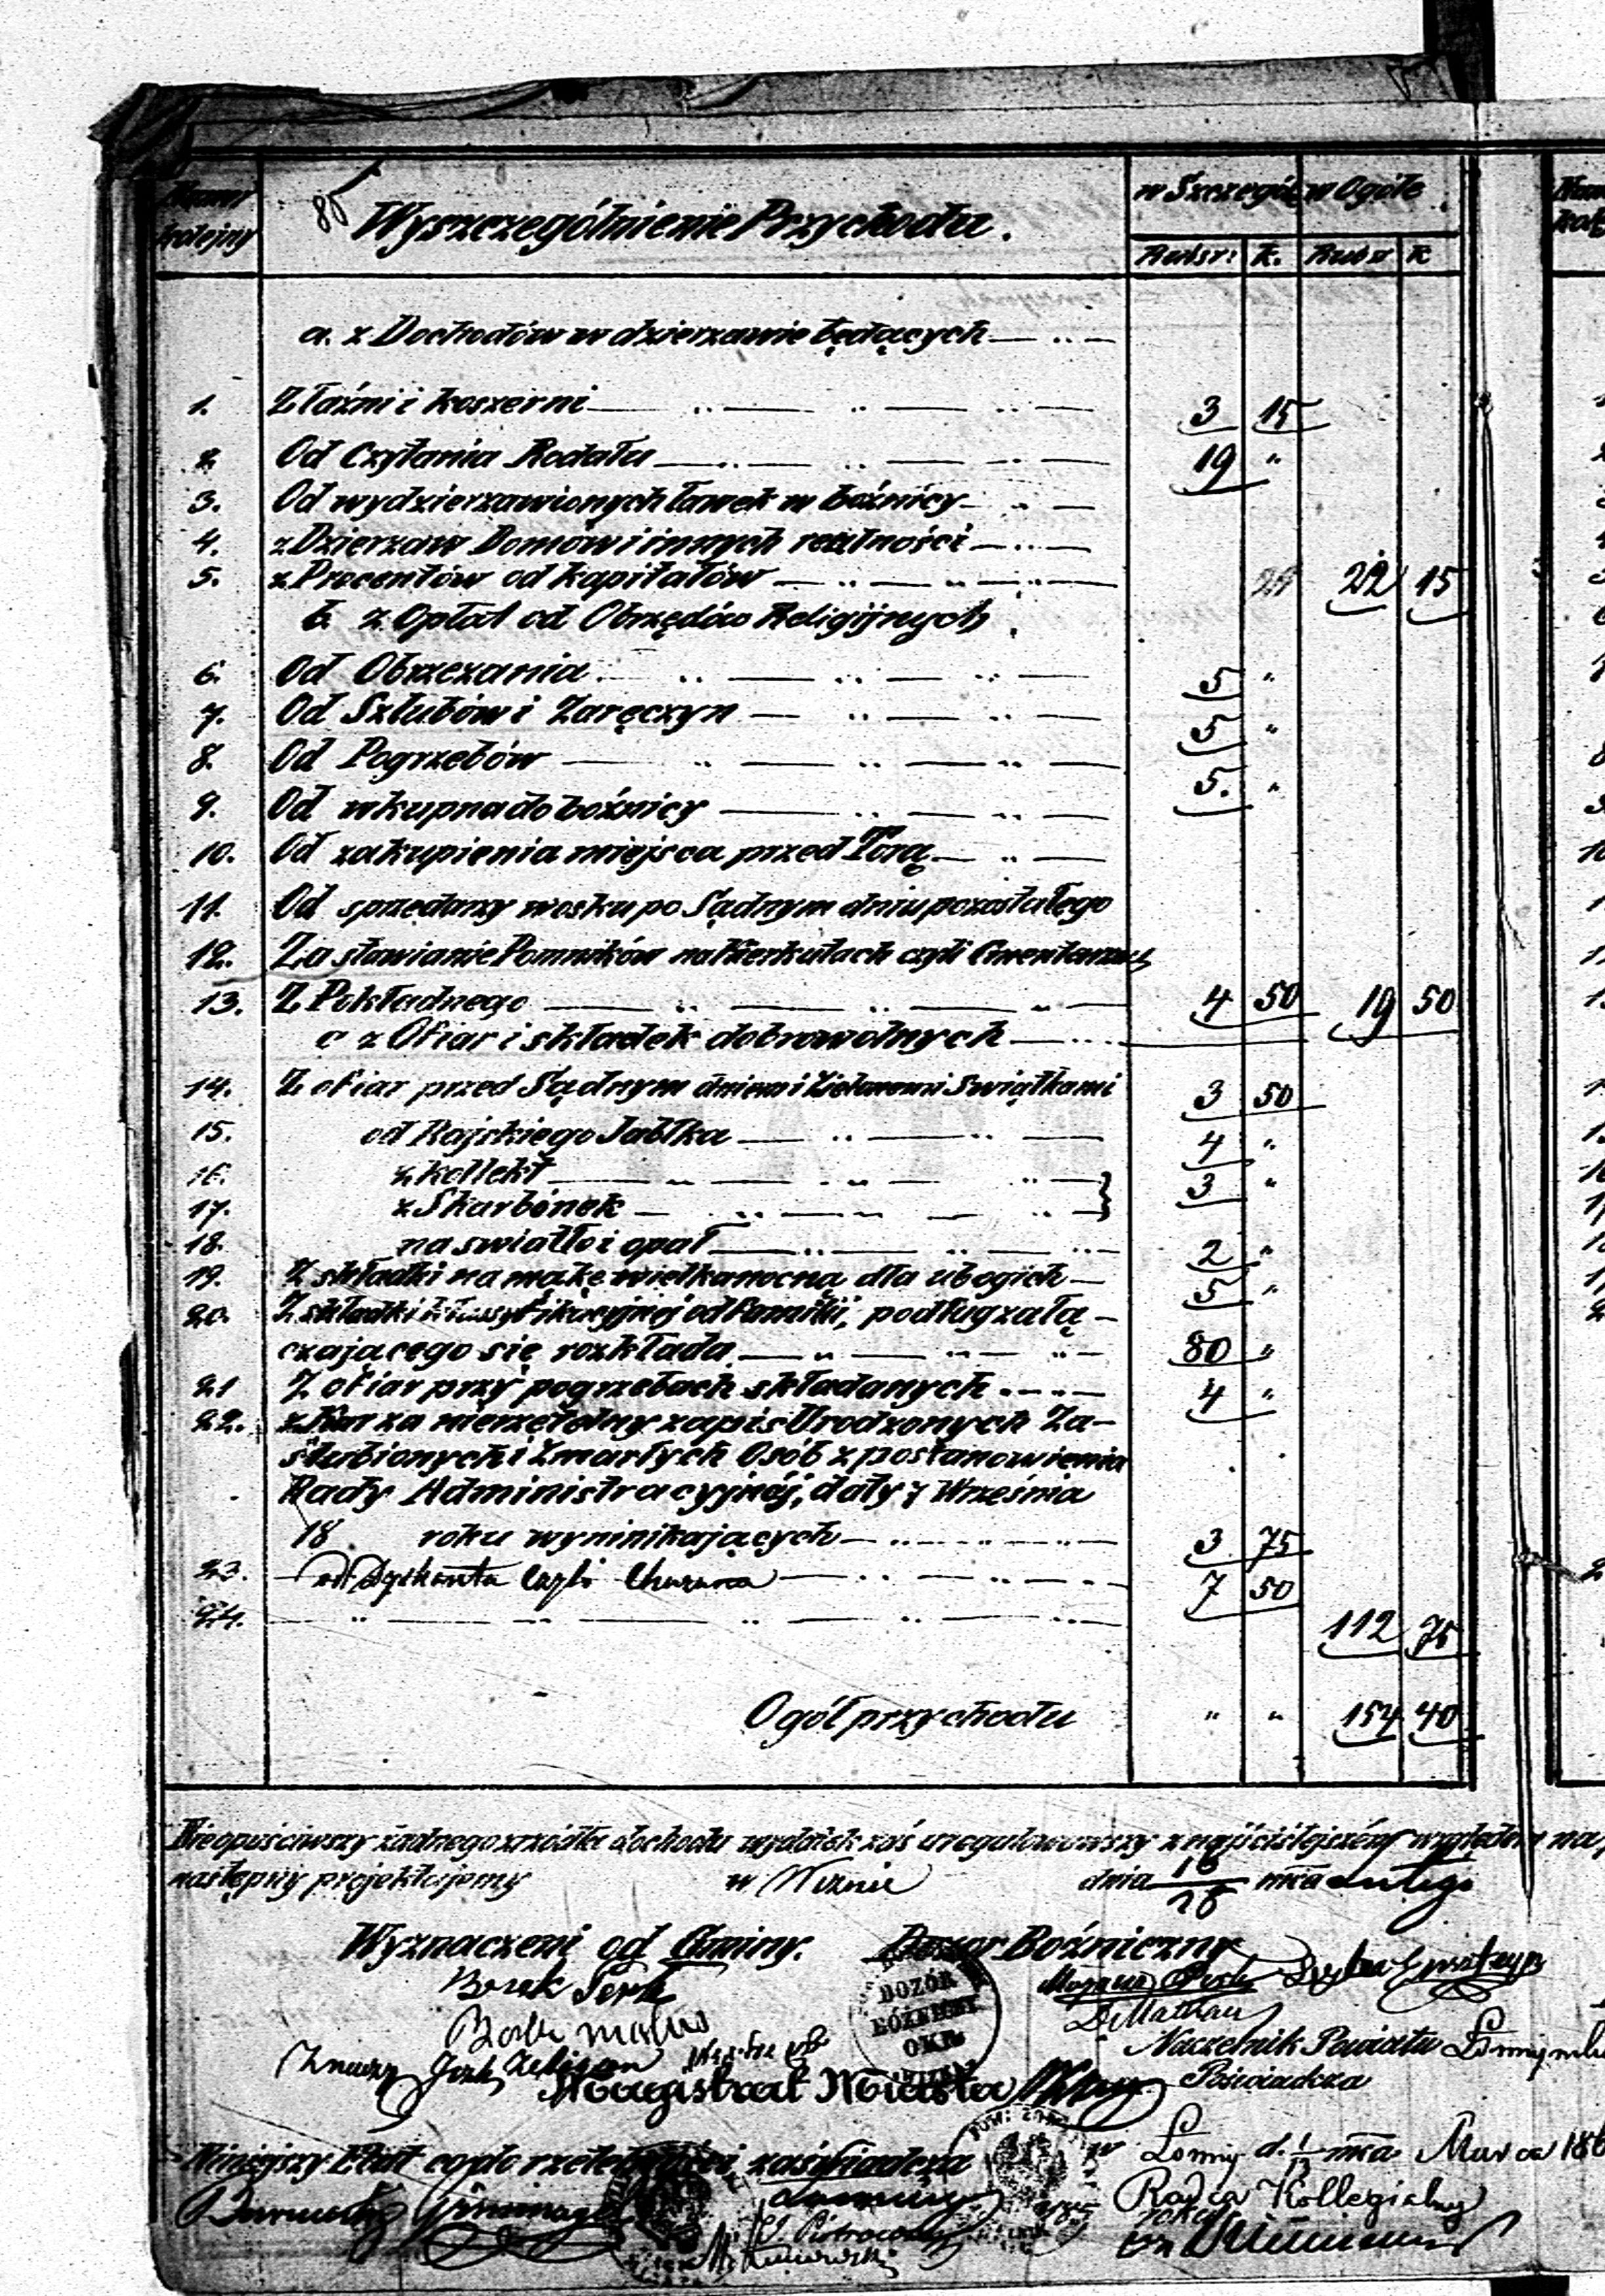 Numer kolejny
85
Wyszczególnienie Przychodu.
w Szczególe w Ogóle
Rubsr: K. Rubsr K
a. z Dochodów w dzierzawie będących
1. Z łaźni i koszerni 3 15
2. Od Czytania Rodału 19 "
3. Od wydzierzawionych ławek w bóźnicy
4. z Dzierzaw Domów i innych realności
5. z Procentów od kapitałów 22 15
b. z Opłat od Obrzędów Religijnych
6. Od Obrzezania 5 "
7. Od Szlubów i Zaręczyn 5 "
8. Od Pogrzebów 5. "
9. Od wkupna do bóźnicy
10. Od zakupienia miejsca przed Torą
11. Od sprzedarzy wosku po Sądnym dniu pozostałego
12. Za stawianie Pomników na Kierkutach czyli Cmentarzach
13. Z Pokładnego 4 50 19 50
c z Ofiar i składek dobrowolnych
14. Z ofiar przed Sądnym dniem i Zielonemi Swiątkami 3 50
15. od Rajskiego Jabłka 4 "
16. z kollekt 3 "
17. z Skarbónek
18. na swiatło i opał 2 "
19. Z składki na mąkę wielkanocną dla ubogich 5 "
20. Z składki klassyfikacyjnej od familii, podług załą-
czającego się rozkłada 80 "
21 Z ofiar przy pogrzebach składanych 4 "
22. z Kar za nierzetelny zapis Urodzonych Za-
ślubionych i Zmarłych Osób z postanowienia
Rady Administracyjnéj, daty 7 Września
18 roku wyninikających 3 75
23. 7 50
24. 112 75
Ogół przychodu " " 154 40
Nieopuściwszy żadnego zrzódła dochodu wydatek zaś uregulowawszy z najściślejszém względem na
następny projektujemy w Wiznie dnia 16/28 mca Lutego
Wyznaczeni od Gminy. Dozor Bóźniczny
Borek
DOZÓR
BÓŻNICZY
OKR.
Naczelnik Powiatu Łomżyńskie
Poświadcza
Magistrat Miasta Wizny
w Łomży d. 1/13 mca Marca 186
Niniejszy Etat co do rzetelności zaświadcza
Radca Kollegialny